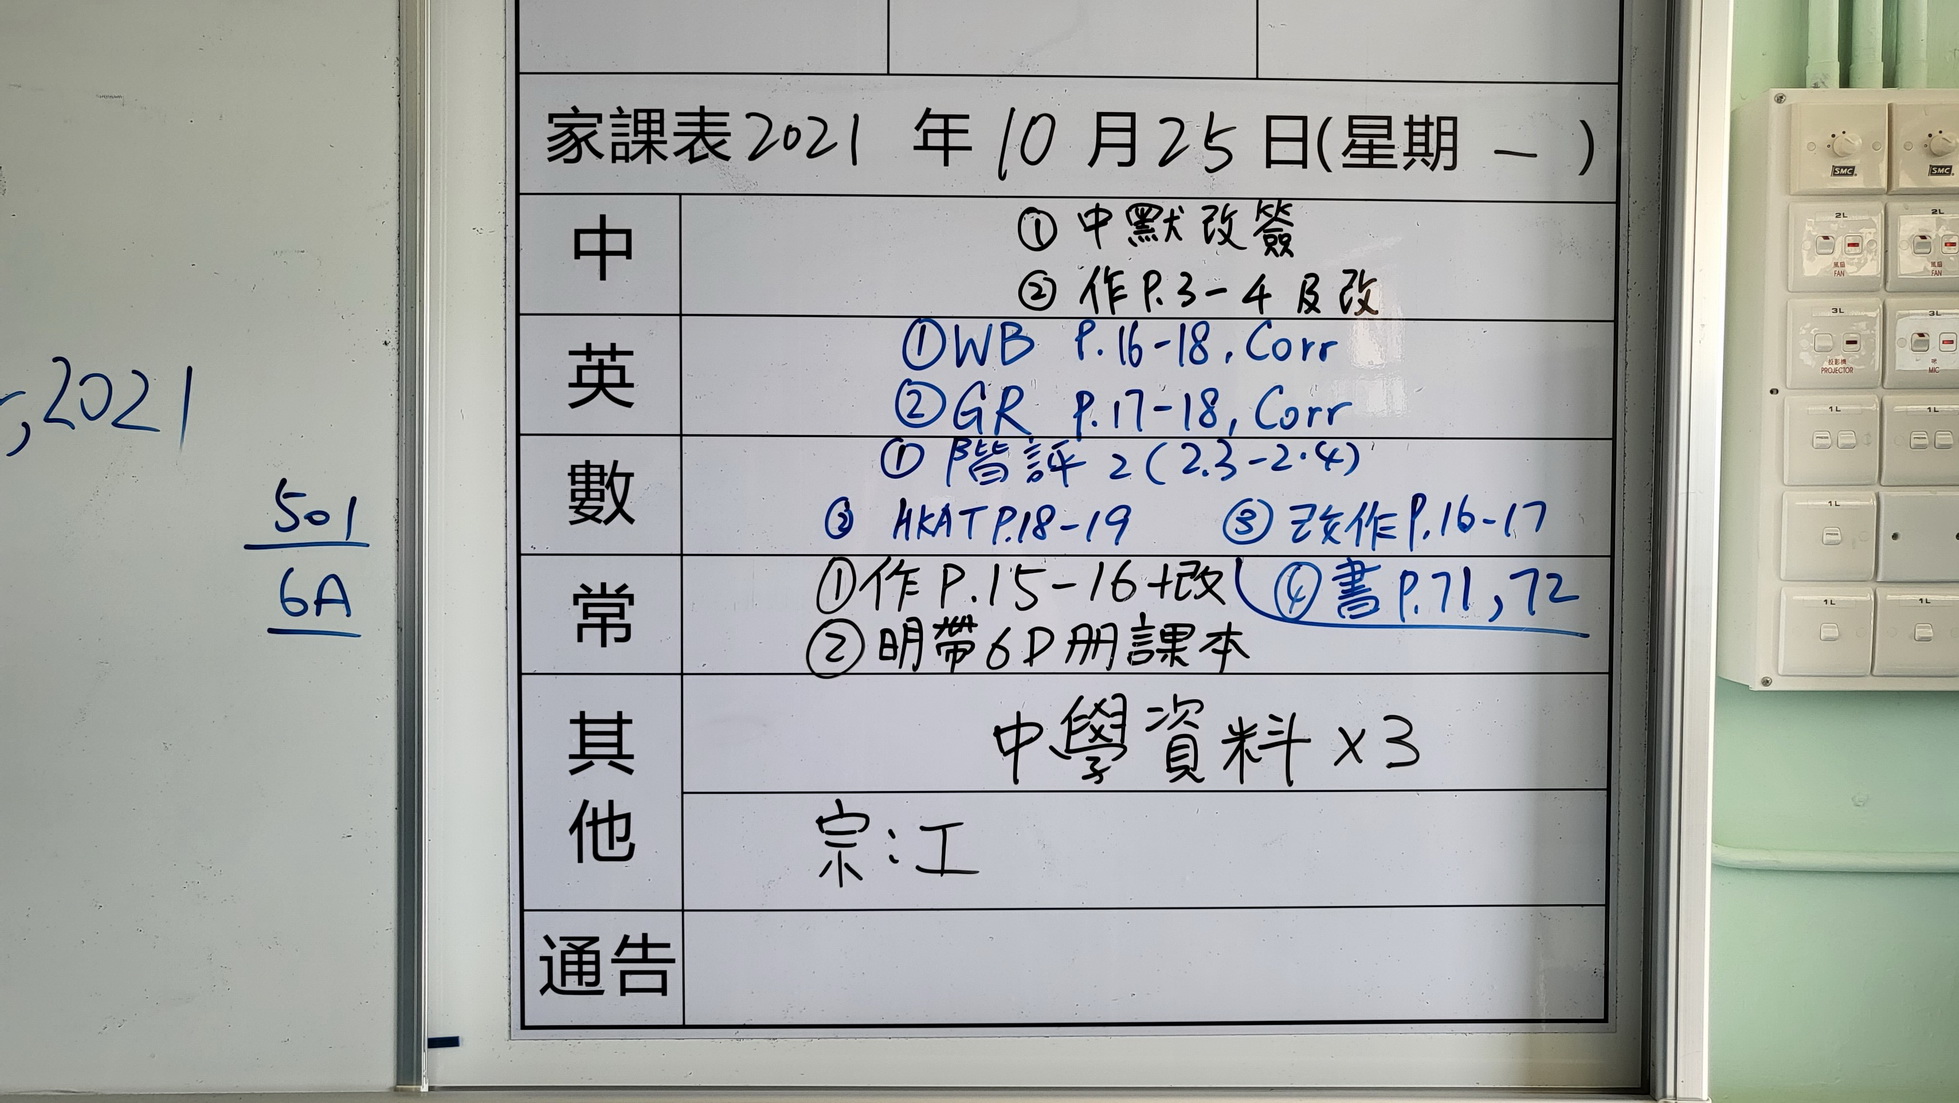 ,2021
501
6A
家課表2021年10月25日(星期一)
中
①中默改簽
②作P.3-4及改
英
①WB P.16-18, Corr
②GR P.17-18, Corr
數
①階評2(2.3-2.4)
② HKAT P.18-19 ③改作P.16-17
④書P.71,72
常
①作P.15-16+改
②明帶6D冊課本
其他
中學資料x3
宗:工
通告
SMC
SMC
2L
風扇
FAN
2L
風扇
FAN
3L
投影機
PROJECTOR
3L
咪
MIC
1L
1L
1L
1L
1L